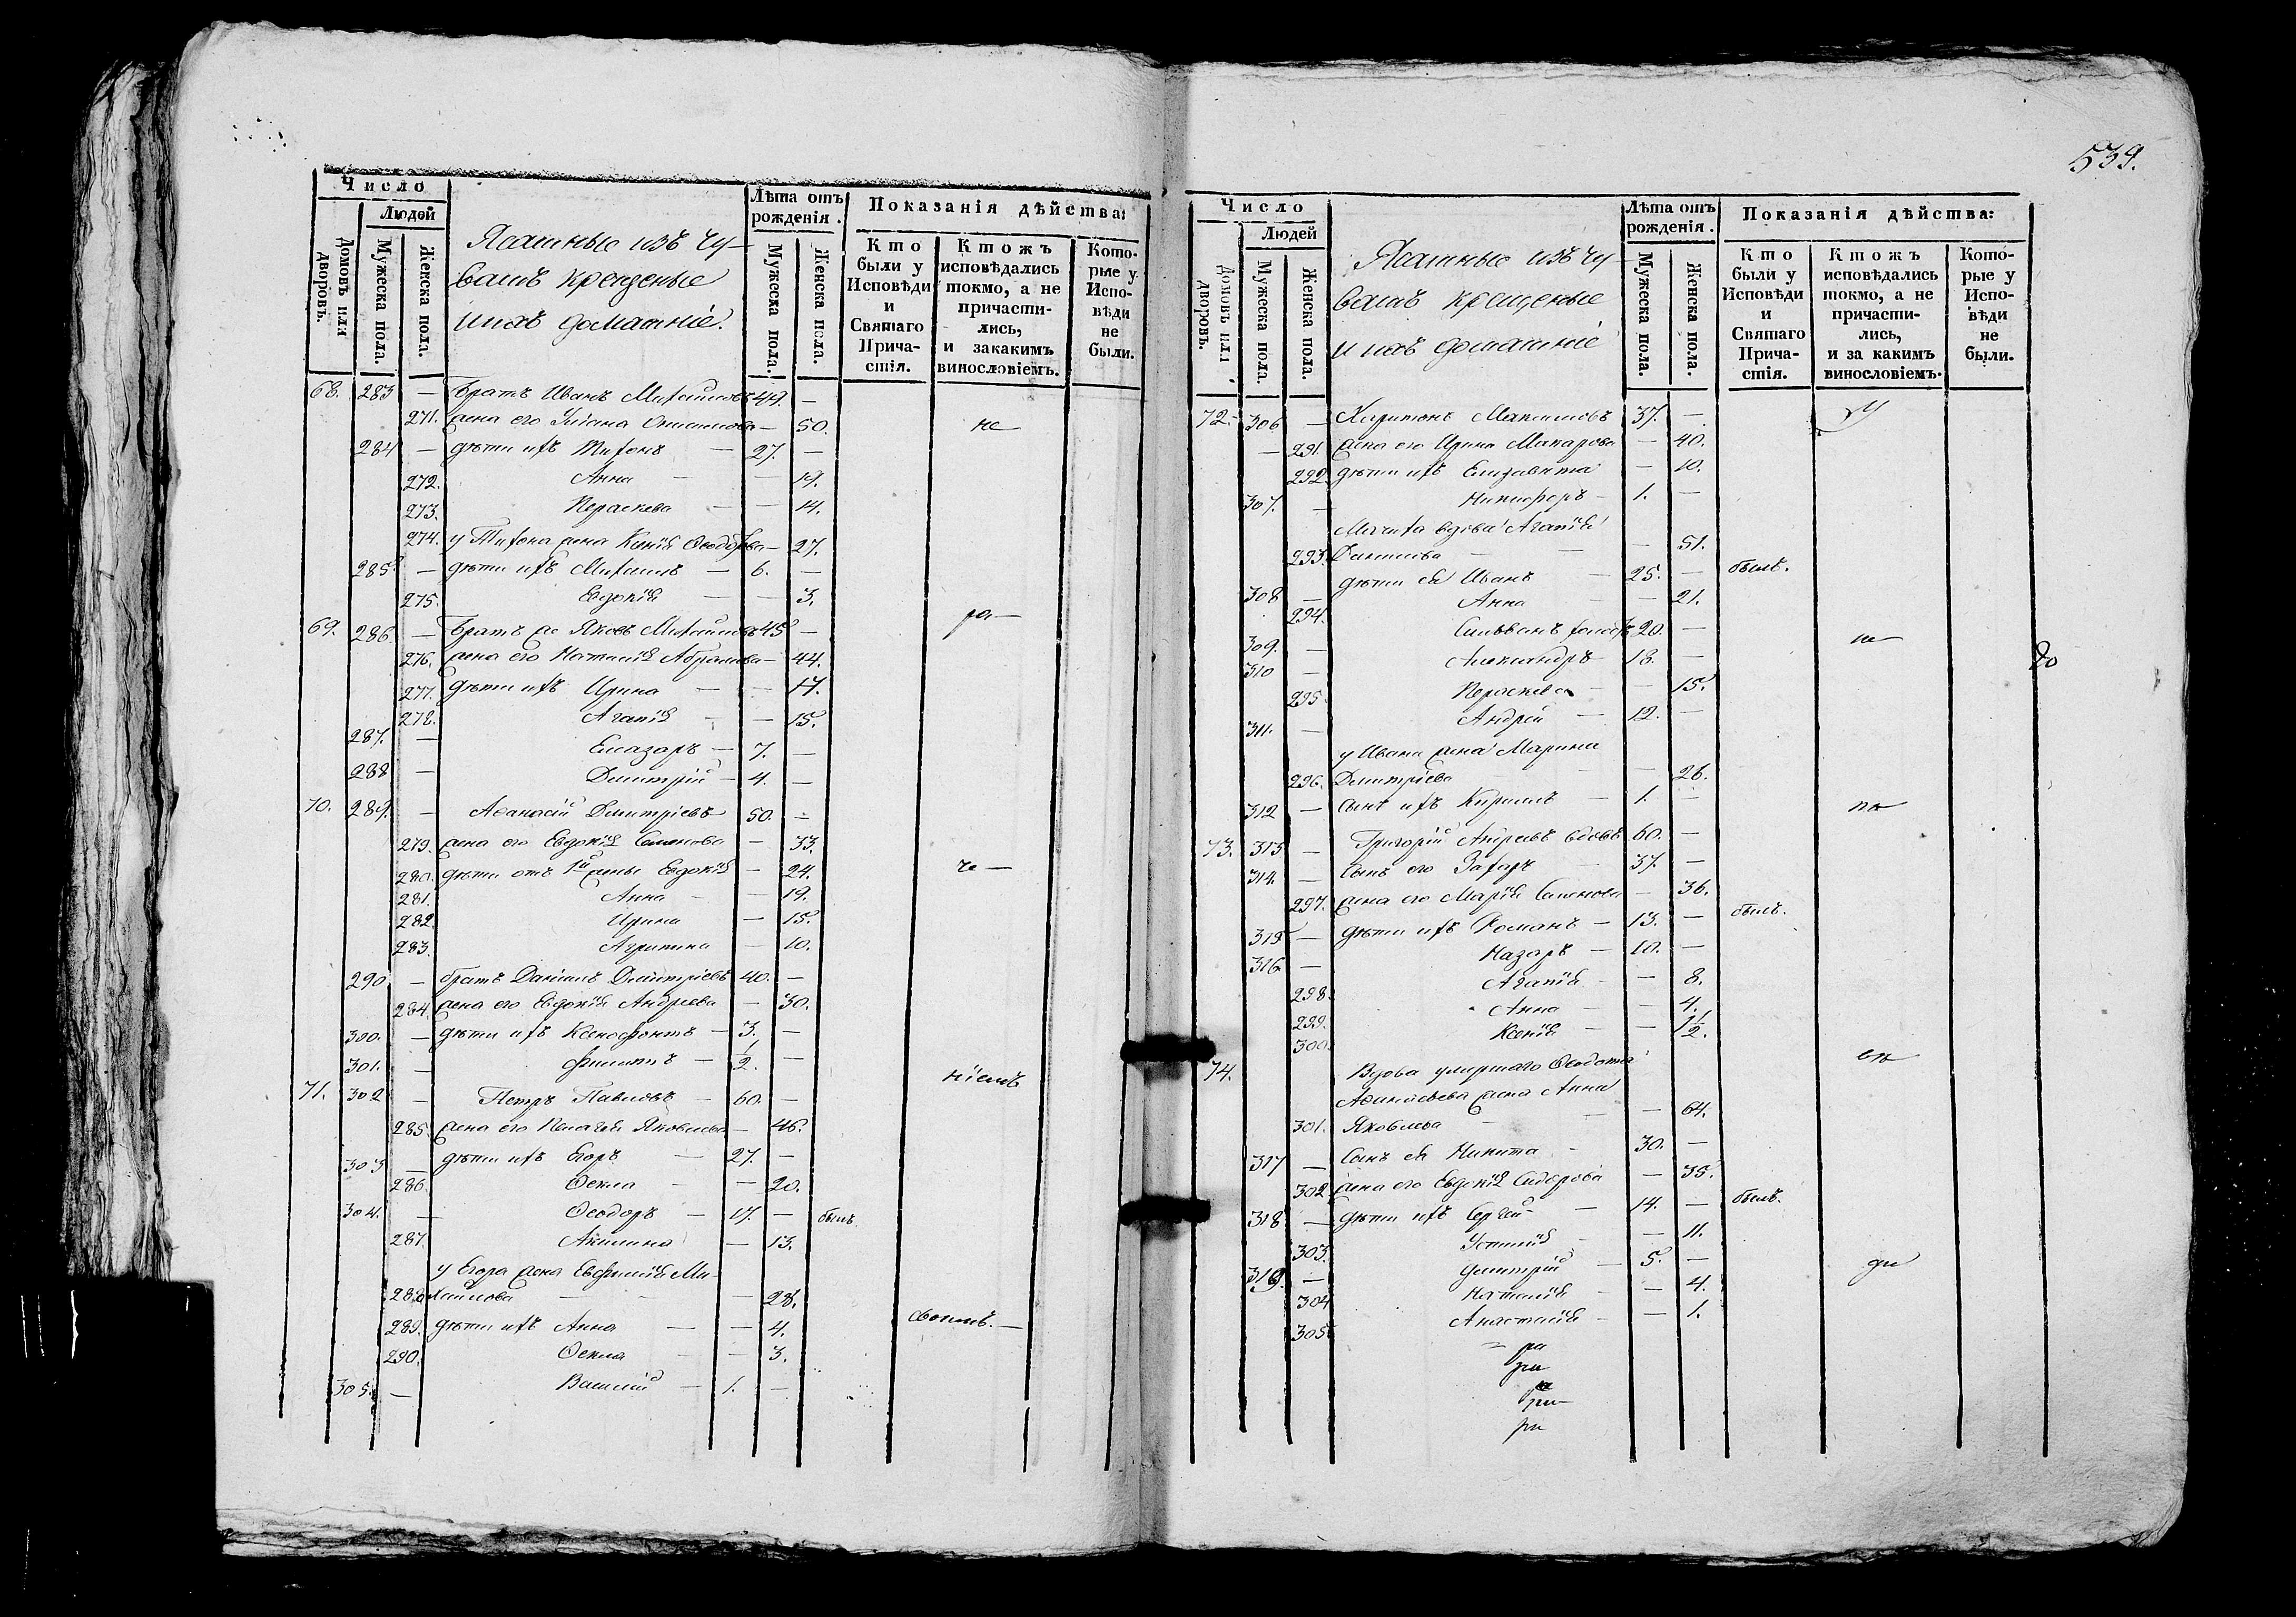 539.
Число
Людей
Домовъ или дворовъ.
Мужеска пола.
Женска пола.
Ясашные изъ чу-
вашъ крещеные
и ихъ домашніе.
Лѣта отъ рожденія.
Мужеска пола.
Женска пола.
Показанія дѣйства:
Кто были у Исповѣди и Святаго Прича- стія.
Ктожъ исповѣдались токмо, а не причасти- лись, и закакимъ винословіемъ.
Кото- рые у Испо- вѣди не были.
68. 283 — Братъ Иванъ Михайловъ 49. —
271. жена его Ульяна — 50. не
284 — дѣти ихъ Тихонъ — 27. —
272. Анна — — 19.
273. Параскева — — 14.
274. у Тихона жена Ксенія Ѳеодорова — 27.
285 — дѣти ихъ Михаилъ — 6. —
275. Евдокія — — 3.
69. 286 — Братъ же Яковъ Михайловъ 45 — ра—
276. жена его Наталія Абрамова — 44.
277. дѣти ихъ Ирина — — 17.
278. Агапія — — 15.
287. — Елеазаръ — 7. —
288 — Димитрій — 4. —
70. 289. — Аѳанасій Димитріевъ 50. —
279. жена его Евдокія Семенова — 33.
280. дѣти отъ 1й жены Евдокія — 24. че —
281. Анна — — 19.
282. Ирина — 15.
283. Агрипина — 10.
290 — братъ Даніилъ Димитріевъ 40. —
284. жена его Евдокія Андреева — 30.
300. — дѣти ихъ Ксенофонтъ — 3. —
301. — Филиппъ — 1/2. —
71. 302 — Петръ Павловъ — 60. — ніемъ
285. жена его Пелагея Яковлева — 46.
303 — дѣти ихъ Егоръ — 27. —
286. Ѳекла — — 20.
304. — Ѳеодоръ — 17. — былъ.
287. Акилина — 13.
у Егора жена Евфимія Ми-
288 хаилова — — — 28.
289. дѣти ихъ Анна — — 4. своимъ. —
290. Ѳекла — — 3.
305. — Василій — 1. —
Число
Людей
Домовъ или дворовъ.
Мужеска пола.
Женска пола.
Ясашные изъ чу-
вашъ крещеные
и ихъ домашніе
Лѣта отъ рожденія.
Мужеска пола.
Женска пола.
Показанія дѣйства:
Кто были у Исповѣди и Святаго Прича- стія.
Ктожъ исповѣдались токмо, а не причасти- лись, и за какимъ винословіемъ.
Кото- рые у Испо- вѣди не были.
72. 306 — Харитонъ Максимовъ 37. —
— 291. жена его Ирина Макарова — 40.
292. дѣти ихъ Елизавета — 10.
307. — Никифоръ — 1. —
Мачиха вдова Агапія
293. Данилова — — — 51.
308 — дѣти ея Иванъ — 25. — былъ.
294. Анна — — 21.
309. — 20. — не
310 — Александръ 18. — до
295. Параскева — — 15.
311. — Андрей — 12. —
у Ивана жена Марина
296. Димитріева — — 26.
312 — сынъ ихъ Кириллъ — 1. — по
73. 313 — Григорій Андреевъ вдовъ 60. —
314. — Сынъ его Захаръ — 37. —
297. жена его Марія Семенова — 36.
315 — дѣти ихъ Романъ — 13. — былъ.
316 — Назаръ — 10. —
298. Агапія — — 8.
299. Анна — — 4.
300. Ксенія — — 1 1/2.
74. Вдова умершаго Ѳеодота
Аѳанасьева жена Анна
301. Яковлева — — — 64.
317 — Сынъ ея Никита — 30. —
302. жена его Евдокія Сидорова — 35.
318 — дѣти ихъ Сергій — 14. — былъ.
303. Устинія — — 11.
319. — Димитрій — 5. —
304 Наталія — — 4.
305 Анастасія — — 1.
ра